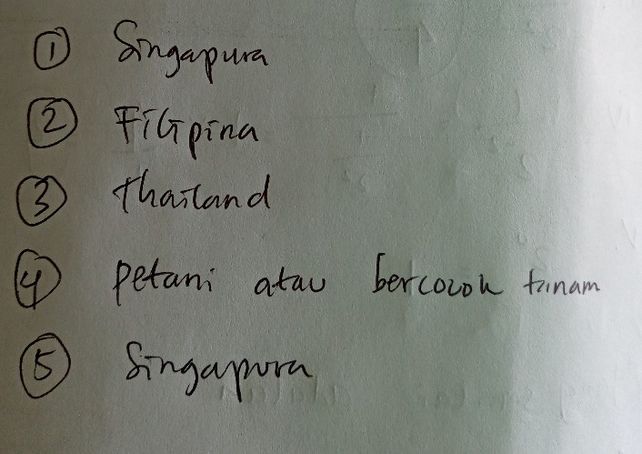 1 Singapura
2 Filipina
3 Thailand
4 Petani atau bercocok tanam
5 Singapura